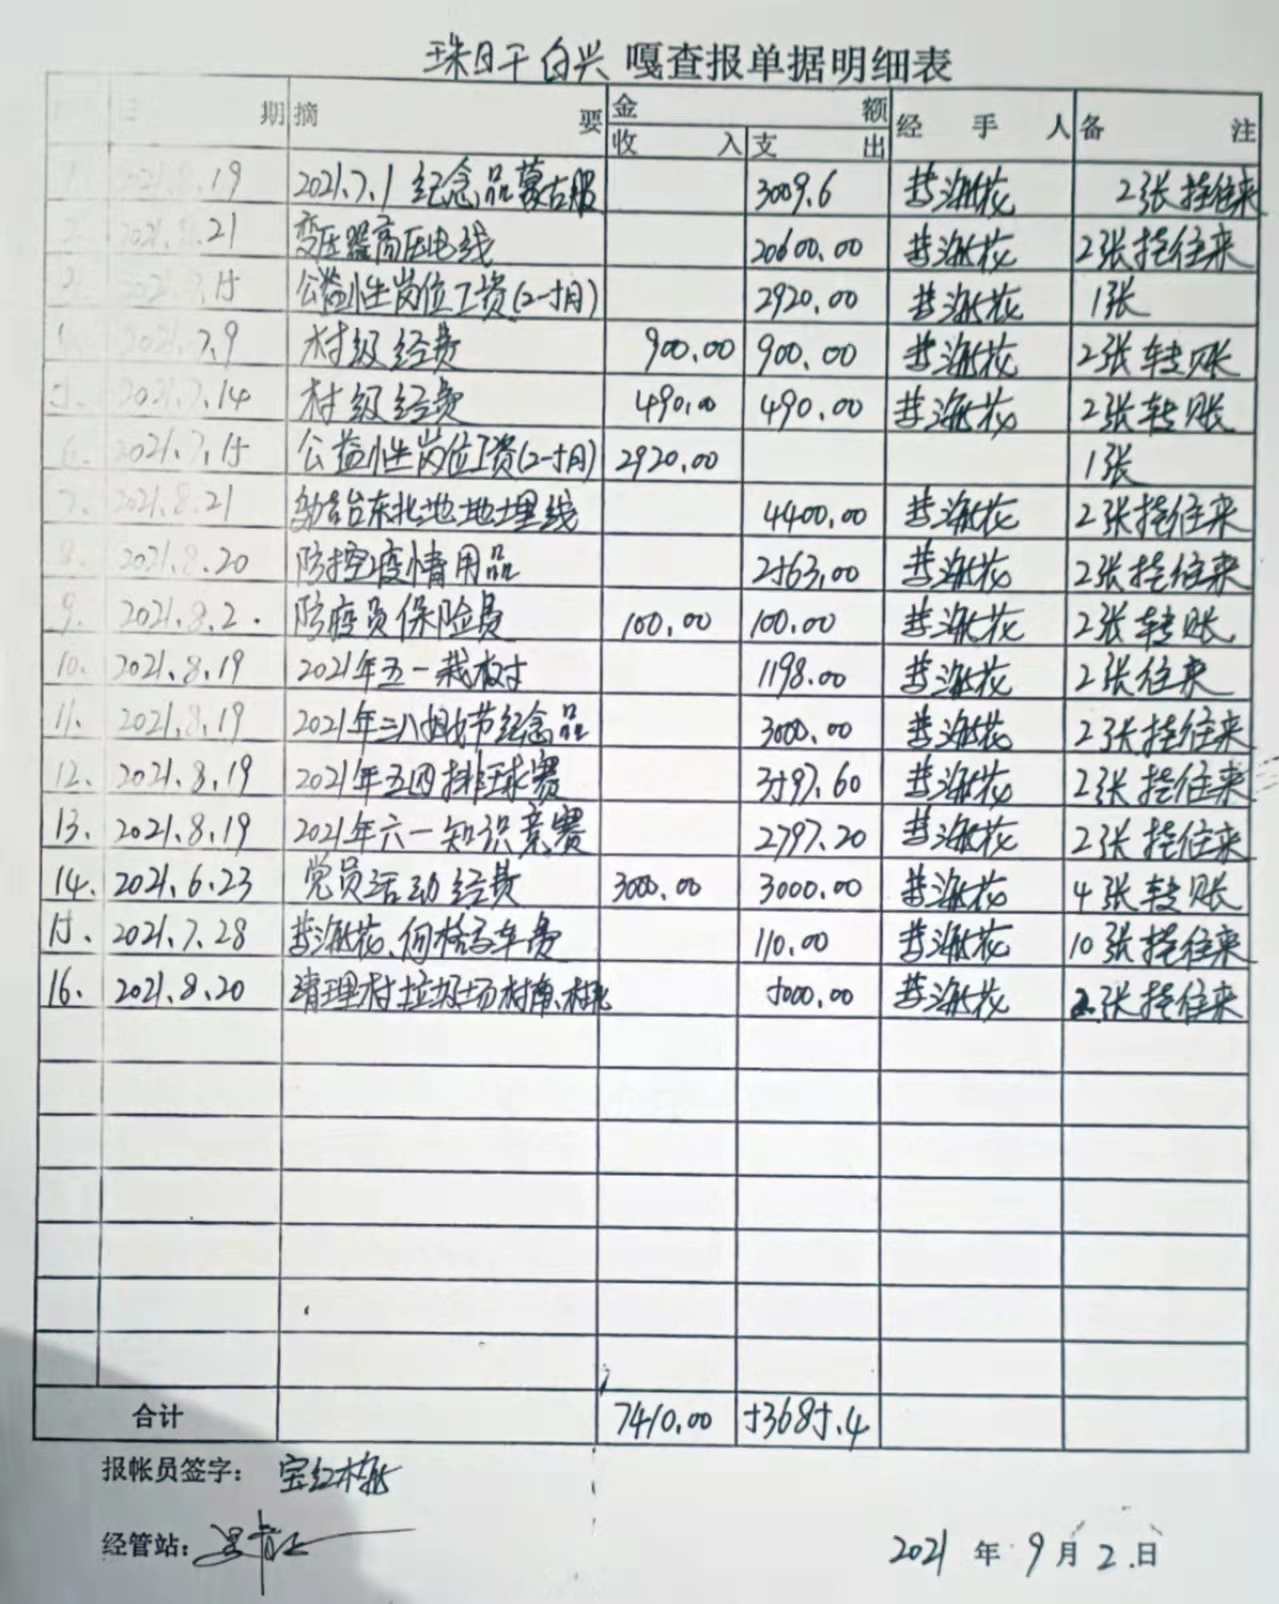 珠日干白兴 嘎查报单据明细表
日期 摘要 金额 经手人 备注
收入 支出
1. 2021.8.19 2021.7.1 纪念品蒙古服 3009.6 李海花 2张挂往来
2. 2021.8.21 变压器高压电线 20600.00 李海花 2张挂往来
3. 2021.7.15 公益性岗位工资(2-5月) 2920.00 李海花 1张
4. 2021.7.9 村级经费 900.00 900.00 李海花 2张转账
5. 2021.7.14 村级经费 490.00 490.00 李海花 2张转账
6. 2021.7.15 公益性岗位工资(2-5月) 2920.00 1张
7. 2021.8.21 东北地地埋线 4400.00 李海花 2张挂往来
8. 2021.8.20 防控疫情用品 2563.00 李海花 2张挂往来
9. 2021.8.2. 防疫员保险费 100.00 100.00 李海花 2张转账
10. 2021.8.19 2021年五一栽树 1198.00 李海花 2张往来
11. 2021.8.19 2021年三八妇女节纪念品 3000.00 李海花 2张挂往来
12. 2021.8.19 2021年五四排球赛 3597.60 李海花 2张挂往来
13. 2021.8.19 2021年六一知识竞赛 2797.20 李海花 2张挂往来
14. 2021.6.23 党员活动经费 3000.00 3000.00 李海花 4张转账
15. 2021.7.28 李海花、何格高车费 110.00 李海花 10张挂往来
16. 2021.8.20 清理村垃圾场村南、村北 5000.00 李海花 2张挂往来
合计 7410.00 53685.4
报帐员签字: 宝红梅
经管站:
2021 年 9 月 2 日